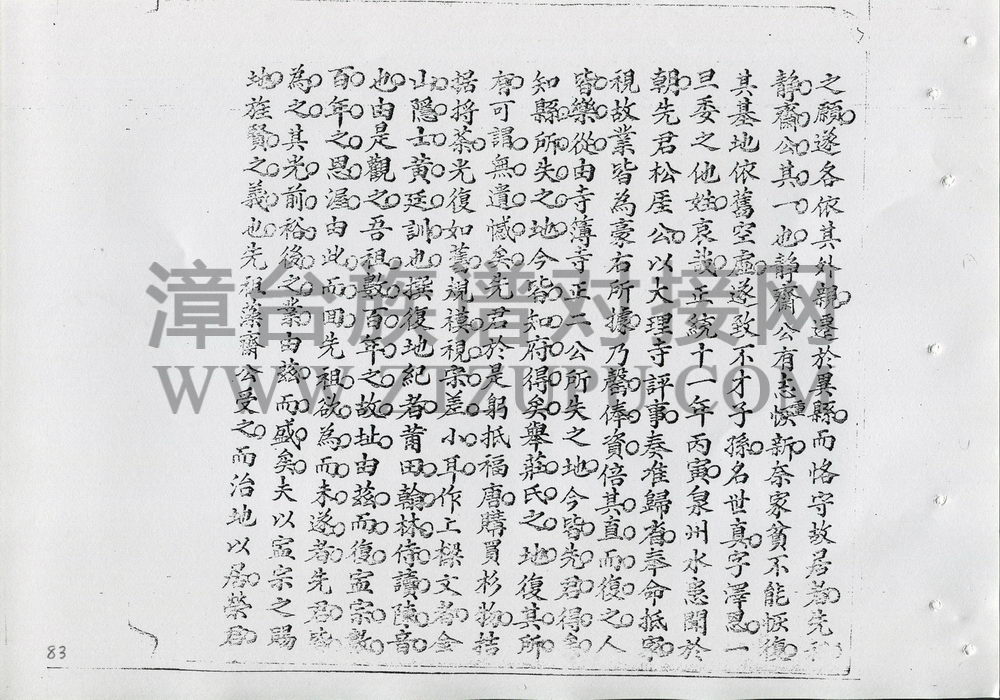 之願遂各依其外親遷於異縣而恪守故居者先和
靜齋公其一也靜齋公有志恢重新奈家貧不能恢復
其基地依舊空虛遂致不才子孫名世真字澤恩一
旦委之他姓哀哉正統十一年丙寅泉州水患聞於
朝先君松崖公以大理寺評事奏准歸省奉命抵家
視故業皆為豪右所據乃罄俸資倍其直而復之人
皆樂從由寺簿寺正二公所失之地今皆先君得
知縣所失之地今皆知府得矣舉莊氏之地復其所
有可謂無遺憾矣先君於是躬抵福唐購買杉物拮
据將茶光復如舊規模視宗差小耳作上樑文者金
山隱士黃廷訓也撰復地紀者莆田翰林侍讀陳音
也由是觀之吾祖數百年之故址由茲而復宣宗數
百年之恩渥由此而回先祖欲為而未遂者先君皆
為之其光前裕後之業由茲而盛矣夫以宣宗之賜
地旌賢之義也先祖藥齋公受之而治地以居榮君
漳台族谱对接网
WWW.ZTZUPU.COM
83